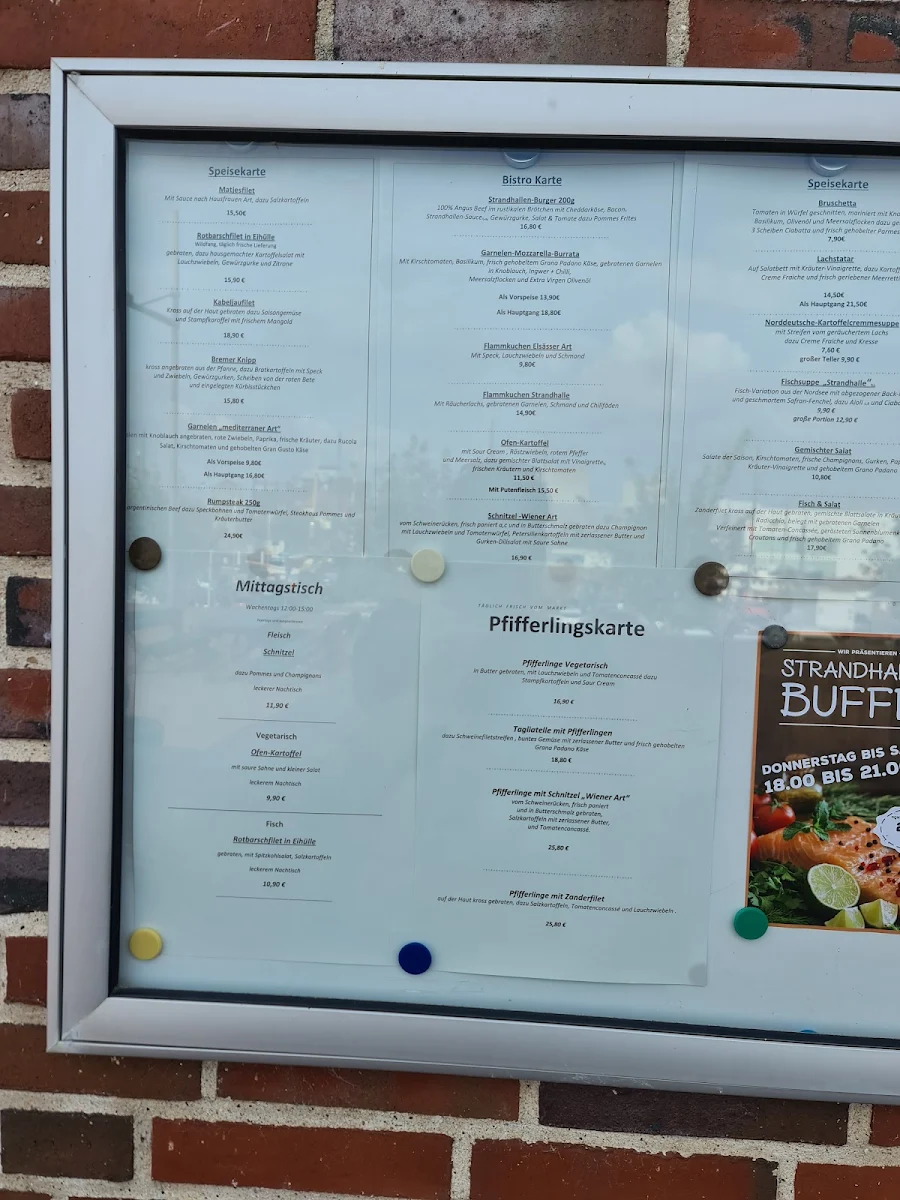 Speisekarte
Matjesfilet
Mit Sauce nach Hausfrauen Art, dazu Salzkartoffeln
15,50€
Rotbarschfilet in Eihülle
Wildfang, täglich frische Lieferung
gebraten, dazu hausgemachter Kartoffelsalat mit
Lauchzwiebeln, Gewürzgurke und Zitrone
15,90 €
Kabeljaufilet
Kross auf der Haut gebraten dazu Saisongemüse
und Stampfkaroffel mit frischem Mangold
18,90 €
Bremer Knipp
kross angebraten aus der Pfanne, dazu Bratkartoffeln mit Speck
und Zwiebeln, Gewürzgurken, Scheiben von der roten Bete
und eingelegten Kürbisstückchen
15,80 €
Garnelen „mediterraner Art"
mit Knoblauch angebraten, rote Zwiebeln, Paprika, frische Kräuter, dazu Rucola
Salat, Kirschtomaten und gehobelten Gran Gusto Käse
Als Vorspeise 9,80€
Als Hauptgang 16,80€
Rumpsteak 250g
argentinischen Beef dazu Speckbohnen und Tomatenwürfel, Steakhaus Pommes und
Kräuterbutter
24,90€
Bistro Karte
Strandhallen-Burger 200g
100% Angus Beef im rustikalen Brötchen mit Cheddarkäse, Bacon,
Strandhallen Sauce, Gewürzgurke, Salat & Tomate dazu Pommes Frites
16,80 €
Garnelen-Mozzarella-Burrata
Mit Kirschtomaten, Basilikum, frisch gehobeltem Grana Padano Käse, gebratenen Garnelen
in Knoblauch, Ingwer + Chili,
Meersalzflocken und Extra Virgen Olivenöl
Als Vorspeise 13,90€
Als Hauptgang 18,80€
Flammkuchen Elsässer Art
Mit Speck, Lauchzwiebeln und Schmand
9,80€
Flammkuchen Strandhalle
Mit Räucherlachs, gebratenen Garnelen, Schmand und Chilifäden
14,90€
Ofen-Kartoffel
mit Sour Cream , Röstzwiebeln, rotem Pfeffer
und Meersalz, dazu gemischter Blattsalat mit Vinaigrette,
frischen Kräutern und Kirschtomaten
11,50 €
Mit Putenfleisch 15,50 €
Schnitzel -Wiener Art
vom Schweinerücken, frisch paniert und in Butterschmalz gebraten dazu Champignon
mit Lauchzwiebeln und Tomatenwürfel, Petersilienkartoffeln mit zerlassener Butter und
Gurken-Dillsalat mit Saure Sahne
16,90 €
Speisekarte
Bruschetta
Tomaten in Würfel geschnitten, mariniert mit
Basilikum, Olivenöl und Meersalzflocken dazu
3 Scheiben Ciabatta und frisch gehobelter
7,90€
Lachstatar
Auf Salatbett mit Kräuter-Vinaigrette, dazu
Creme Fraiche und frisch geriebener
14,50€
Als Hauptgang 21,50€
Norddeutsche-Kartoffelcremmesuppe
mit Streifen vom geräucherten Lachs
dazu Creme Fraiche und Kresse
7,60 €
großer Teller 9,90 €
Fischsuppe „Strandhalle"
Fisch-Variation aus der Nordsee mit abgezogener
und geschmortem Safran-Fenchel, dazu Aioli und
9,90 €
große Portion 12,90 €
Gemischter Salat
Salate der Saison, Kirschtomaten, frische Champignons, Gurken,
Kräuter-Vinaigrette und gehobeltem Grana Padano
10,80€
Fisch & Salat
Zanderfilet kross auf der Haut gebraten, gemischte Blattsalate in
Radicchio, belegt mit gebratenen Garnelen
Verfeinert mit Tomaten-Concassée, gerösteten
Croutons und frisch gehobeltem Grana Padano
17,90€
Mittagstisch
Wochentags 12:00-15:00
Fleisch
Schnitzel
dazu Pommes und Champignons
leckerer Nachtisch
11,90 €
Vegetarisch
Ofen-Kartoffel
mit saure Sahne und kleiner Salat
leckerem Nachtisch
9,90 €
Fisch
Rotbarschfilet in Eihülle
gebraten, mit Spitzkohlsalat, Salzkartoffeln
leckerem Nachtisch
10,90 €
TÄGLICH FRISCH VOM MARKT
Pfifferlingskarte
Pfifferlinge Vegetarisch
in Butter gebraten, mit Lauchzwiebeln und Tomatenconcassé dazu
Stampfkartoffeln und Sour Cream
16,90 €
Tagliatelle mit Pfifferlingen
dazu Schweinefiletstreifen , buntes Gemüse mit zerlassener Butter und frisch gehobelten
Grana Padano Käse
18,80 €
Pfifferlinge mit Schnitzel „Wiener Art"
vom Schweinerücken, frisch paniert
und in Butterschmalz gebraten,
Salzkartoffeln mit zerlassener Butter,
und Tomatenconcassé.
25,80 €
Pfifferlinge mit Zanderfilet
auf der Haut kross gebraten, dazu Salzkartoffeln, Tomatenconcassé und Lauchzwiebeln .
25,80 €
WIR PRÄSENTIEREN
STRANDHA
BUFF
DONNERSTAG BIS S
18.00 BIS 21.0